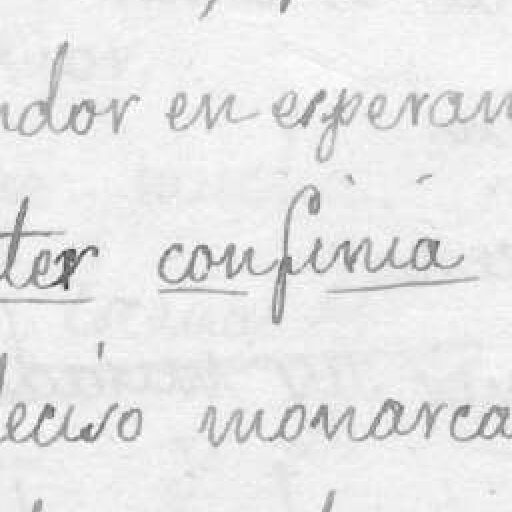 ndor en esperan
ter confinia
deciso monarca